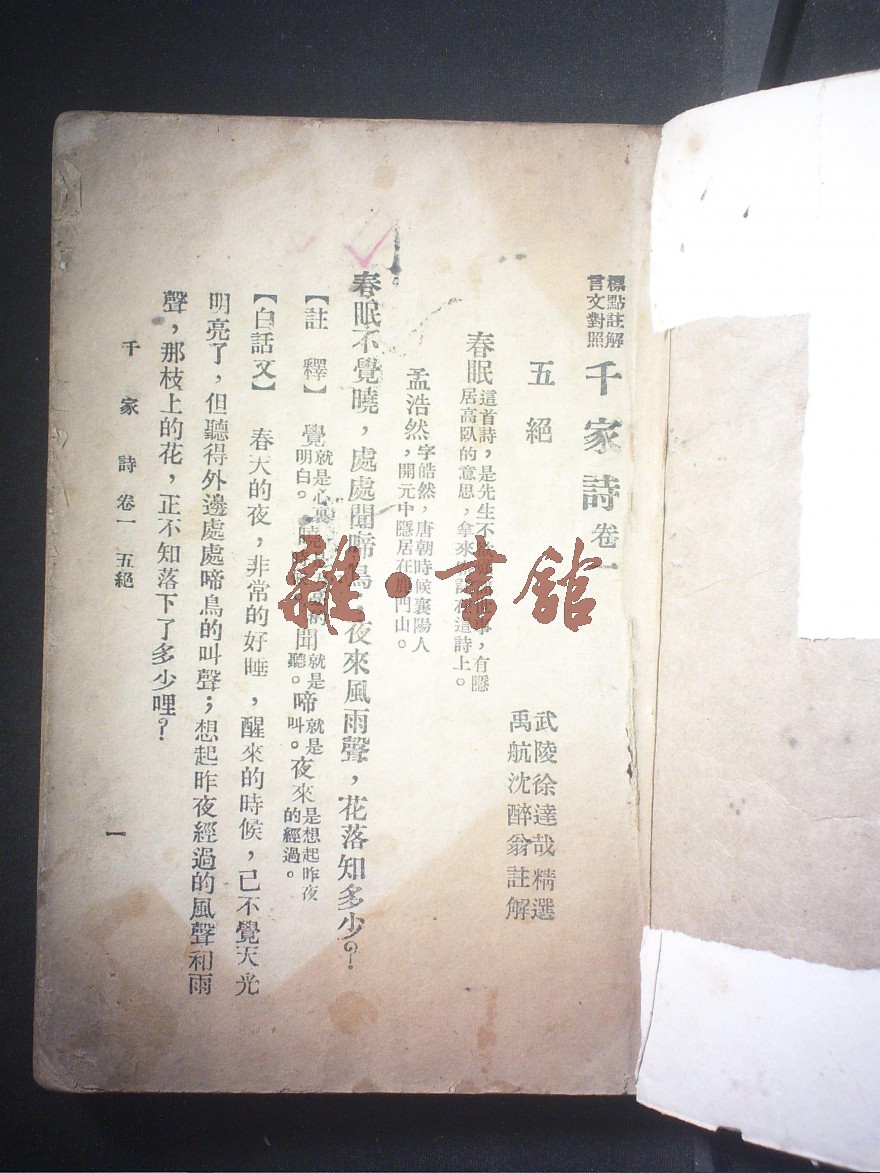 標點註解
言文對照
千家詩卷一
武陵徐達哉精選
禹航沈醉翁註解
五絕
春眠
這首詩，是先生不
事，有隱
居高臥的意思，拿來
在這詩上。
孟浩然
字皓然，唐朝時候襄陽人
，開元中隱居在鹿門山。
春眠不覺曉，處處聞啼鳥，夜來風雨聲，花落知多少？
【註釋】覺
就是心裏
明白。
曉
的
聞
就是
聽。
啼
就是
叫。
夜來
是想起昨夜
的經過。
【白話文】 春天的夜，非常的好睡，醒來的時候，已不覺天光
明亮了，但聽得外邊處處啼鳥的叫聲；想起昨夜經過的風聲和雨
聲，那枝上的花，正不知落下了多少哩？
千家詩 卷一 五絕
一
雜·書館